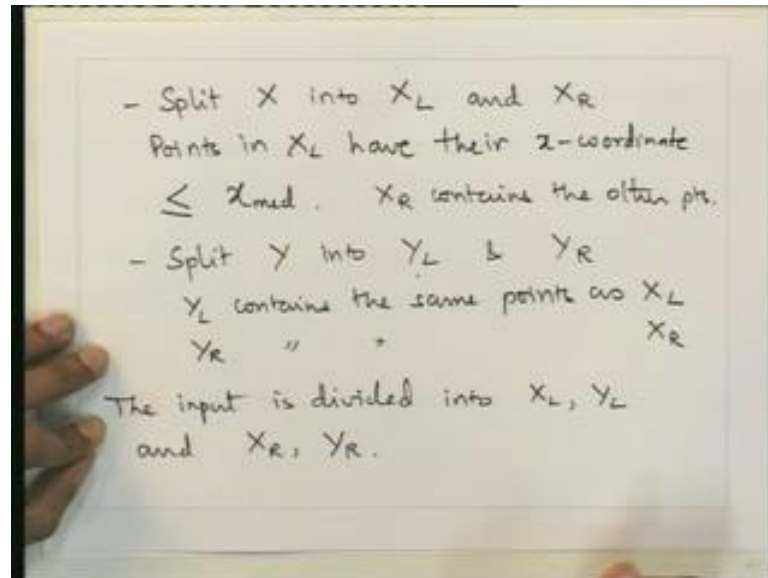 - Split X into X_L and X_R
Points in X_L have their x-coordinate
≤ x_med. X_R contains the other pts.
- Split Y into Y_L & Y_R
Y_L contains the same points as X_L
Y_R " " X_R
The input is divided into X_L, Y_L
and X_R, Y_R.